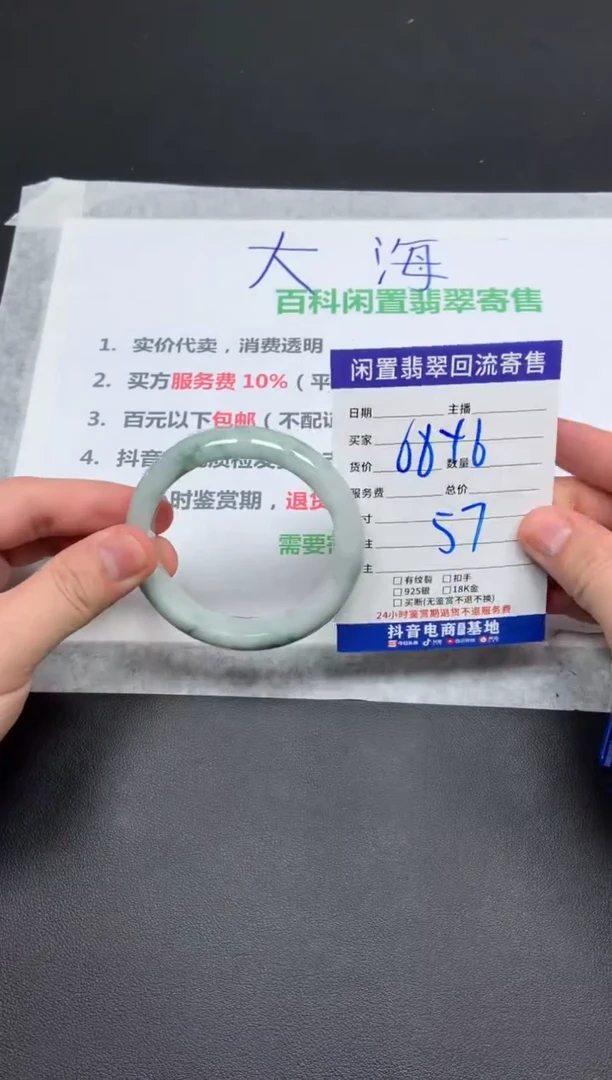 大 海
百科闲置翡翠寄售
1. 实价代卖，消费透明
2. 买方服务费 10%（平
3. 百元以下包邮（不配证
4. 抖音
时鉴赏期，退货
需要寄
闲置翡翠回流寄售
日期 主播
买家
货价 6846 数量
服务费 总价
寸 57
主
主
□ 有纹裂 □ 扣手
□ 925银 □ 18K金
□ 买断(无鉴赏不退不换)
24小时鉴赏期退货不退服务费
抖音电商 基地